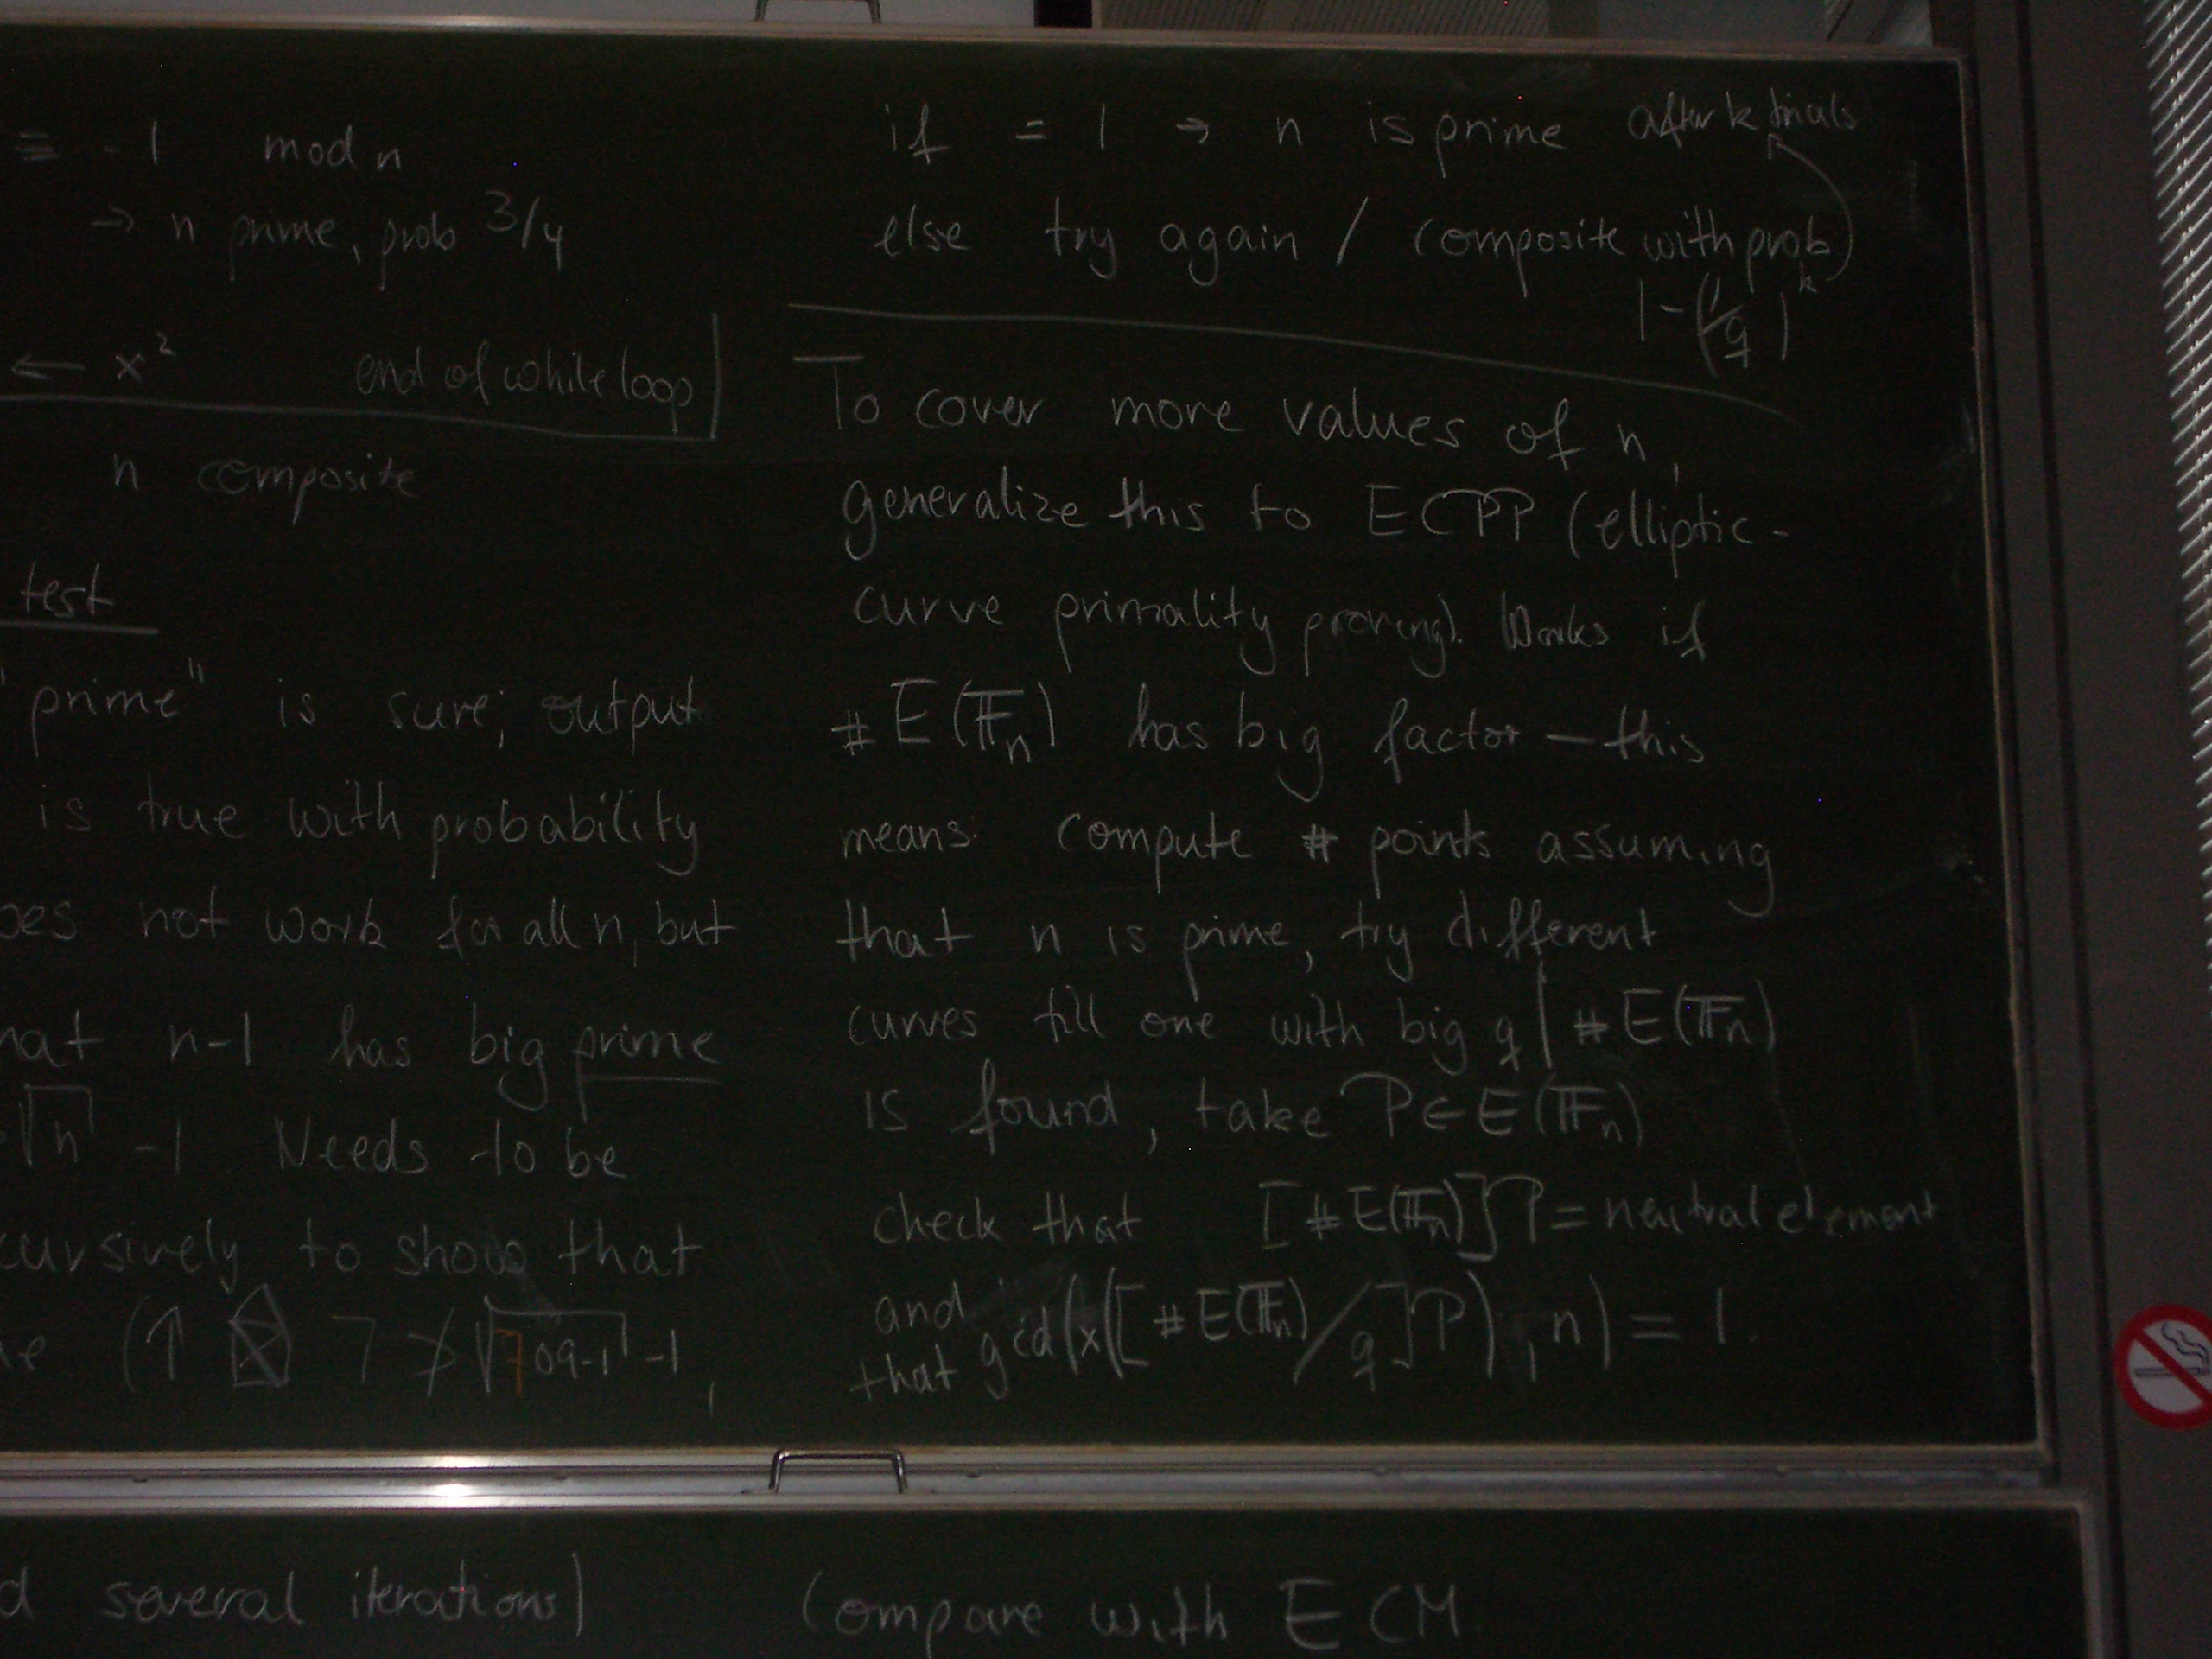 ≡ -1 mod n
→ n prime, prob 3/4
← x²
end of while loop
n composite
test
"prime" is sure, output
is true with probability
oes not work for all n, but
hat n-1 has big prime
√n -1 Needs to be
cursively to show that
(↑ 7 ≯ √709-1 -1,
if = 1 → n is prime after k trials
else try again / composite with prob.
1-(1/q)^k
To cover more values of n,
generalize this to ECPP (elliptic-
curve primality proving). Works if
#E(𝔽n) has big factor – this
means: compute # points assuming
that n is prime, try different
curves till one with big q | #E(𝔽n)
is found, take P∈E(𝔽n)
check that [#E(𝔽n)]P = neutral element
and
that gcd(x([#E(𝔽n)/q]P), n) = 1.
d several iterations)
Compare with ECM.